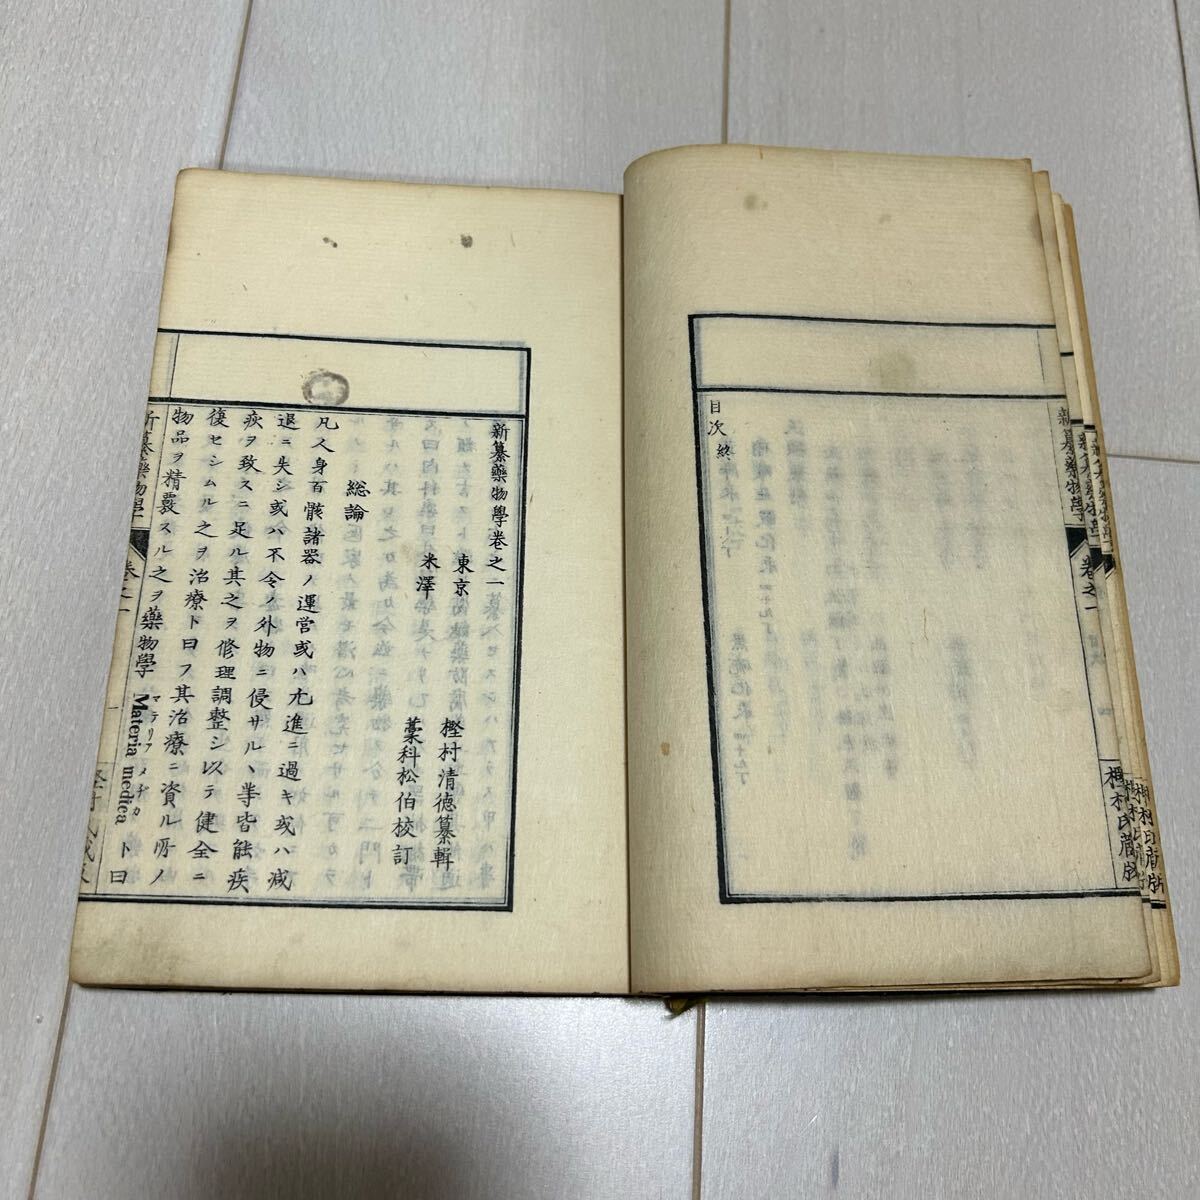 目次終
新纂藥物學
卷之一
樫村氏蔵版
新纂藥物學卷之一
東京 樫村清德纂輯
米澤 藁科松伯校訂
総論
凡人身百骸諸器ノ運営或ハ亢進ニ過キ或ハ減
退ニ失シ或ハ不令ノ外物ニ侵サルヽ等皆能疾
疾ヲ致スニ足ル其之ヲ修理調整シ以テ健全ニ
復セシムル之ヲ治療ト曰フ其治療ニ資ル所ノ
物品ヲ精覈スル之ヲ藥物學 マテリアメヂカ Materia medica ト曰
新纂藥物學
卷之一